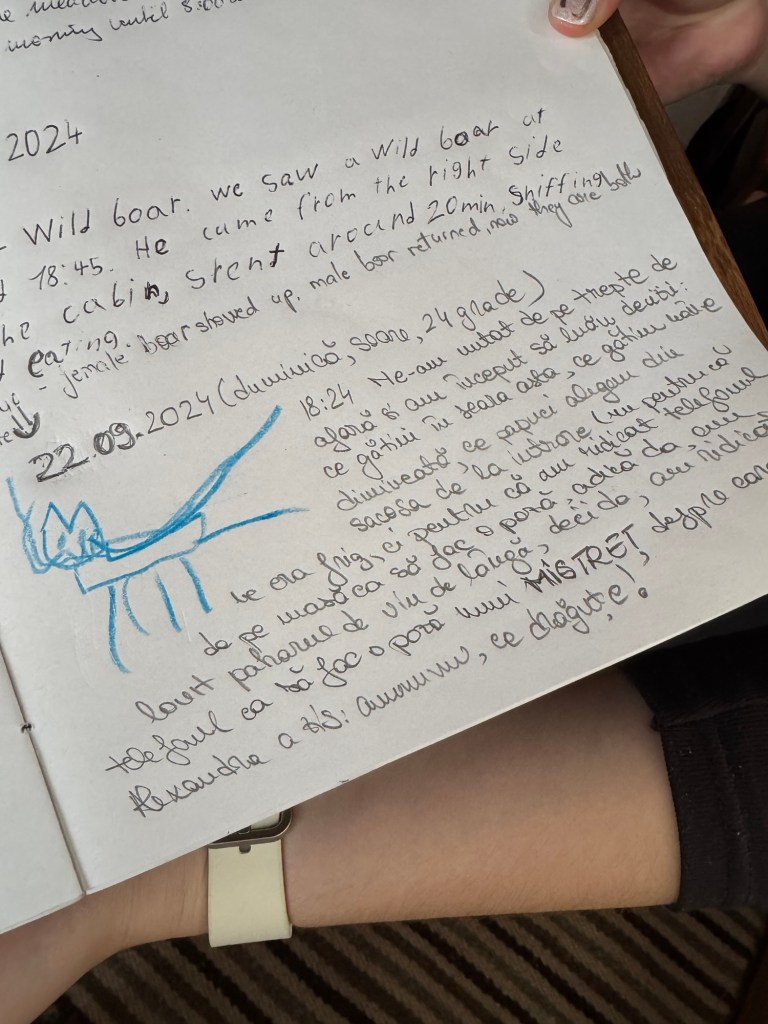 morning until
2024
Wild boar. we saw a wild boar at
18:45. He came from the right side
the cabin, spent around 20min, sniffing
eating.
- female boar showed up, male boar returned, now they are both
22.09.2024 (duminică, soare, 24 grade)
18:24 Ne-am mutat de pe trepte de
afară și am început să luăm decizii:
ce gătim în seara asta, ce gătim mâine
dimineață, ce papuci alegem din
sacoșa de la intrare (nu pentru că
ne era frig, ci pentru că am ridicat telefonul
de pe masă ca să fac o poză, adică da, am
lovit paharul de vin de lângă, deci da, am ridicat
telefonul ca să fac o poză unui MISTREȚ, despre care
Alexandra a zis: ce drăguțe!